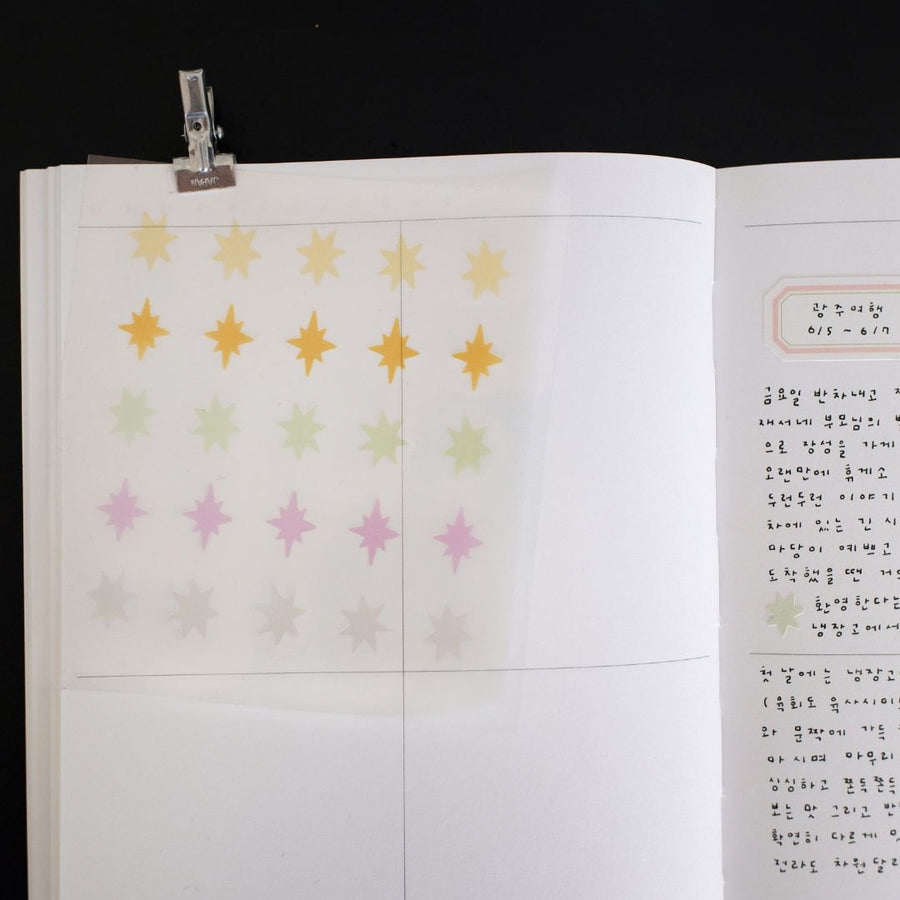 JAPAN
광주여행
6/5 ~ 6/7
금요일 반차내고
재서네 부모님의
으로 장성을 가게
오랜만에 휴게소
두런두런 이야기
차에 있는 긴 시
마당이 예쁘고
도착했을 땐 거
환영한다는
냉장고에서
첫 날에는 냉장고
(육회도 육사시미
와 문짝에 가득
마시며 마무리
싱싱하고 쫀득쫀득
보는 맛 그리고
확연히 다르게
전라도 차원달